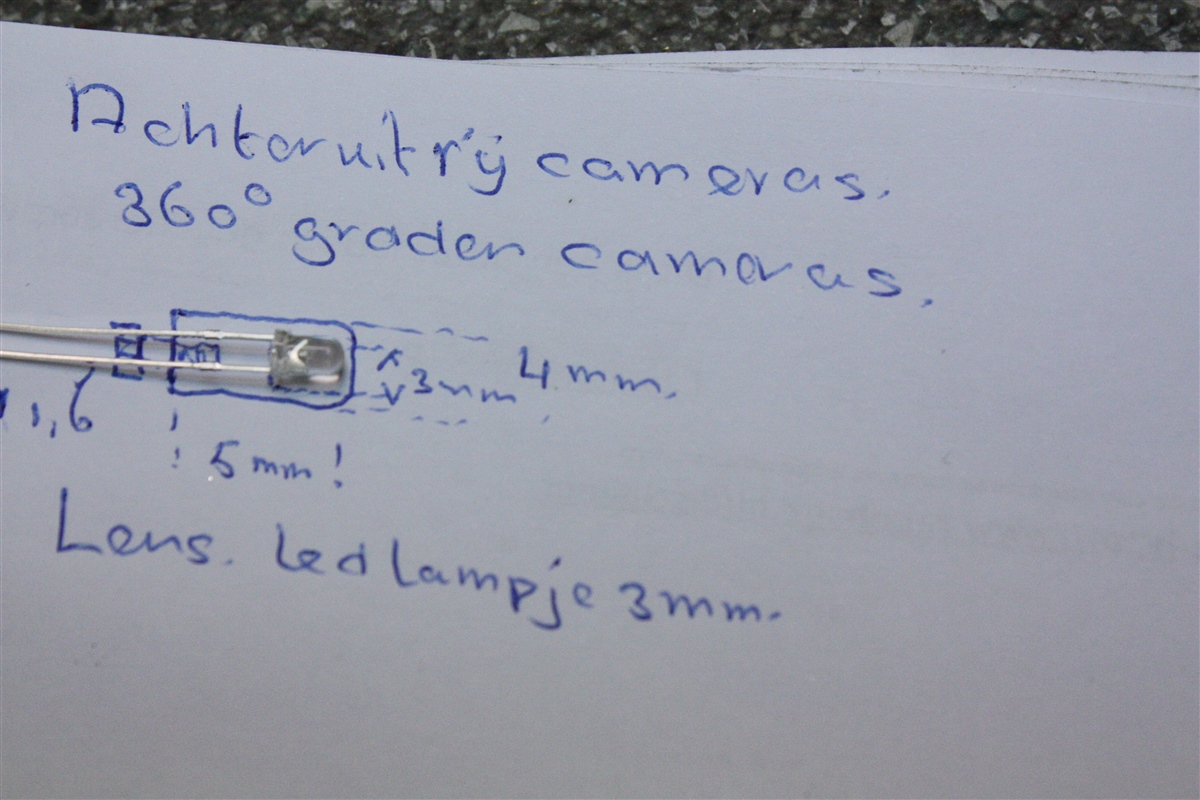 Achteruitrij cameras.
360° graden cameras.
3mm 4mm.
1,6
5mm!
Lens. Led lampje 3mm.